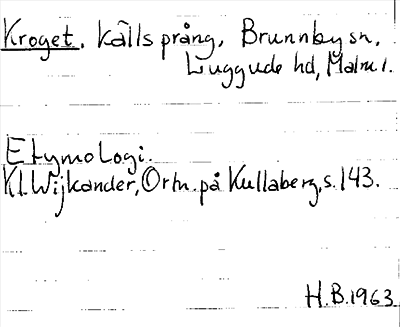 Kroget. Källsprång, Brunnby sn,
Luggude hd, Malm l.
Etymologi.
Kl. Wijkander, Ortn. på Kullaberg, s. 143.
H.B. 1963.